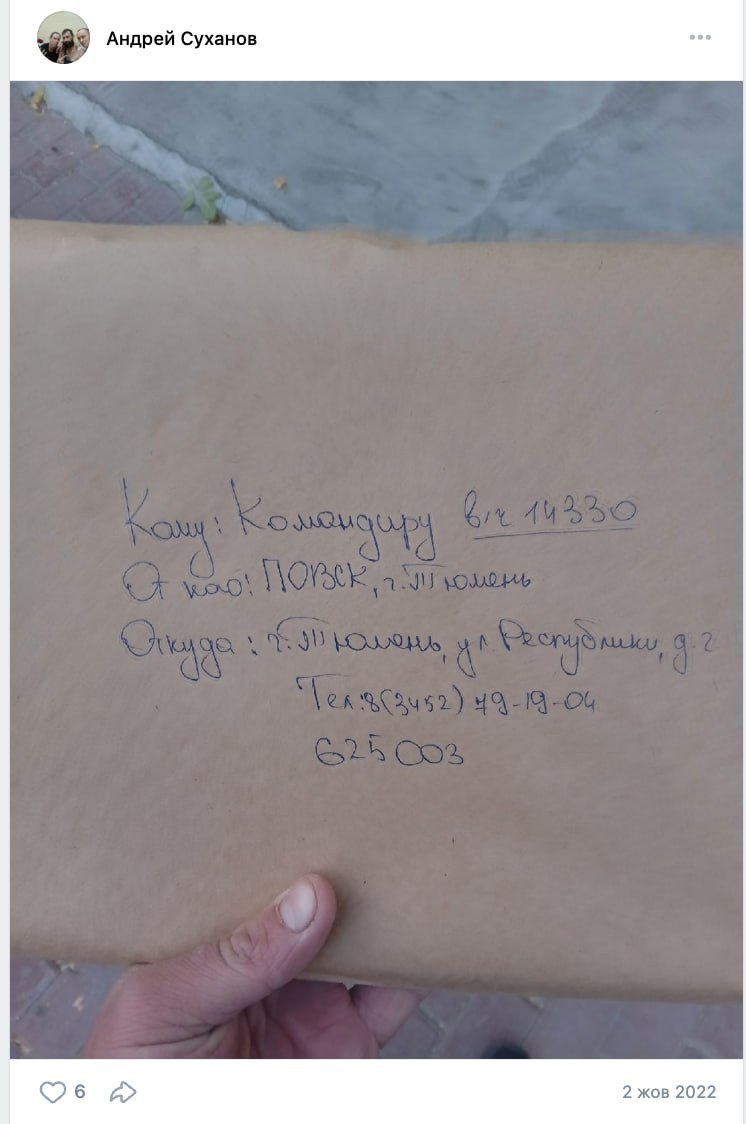 Андрей Суханов
Кому: Командиру в/ч 14330
От кого: ПОВСК, г. Тюмень
Откуда: г. Тюмень, ул Республики, д. 2
Тел: 8(3452) 79-19-04
625003
6
2 жов 2022